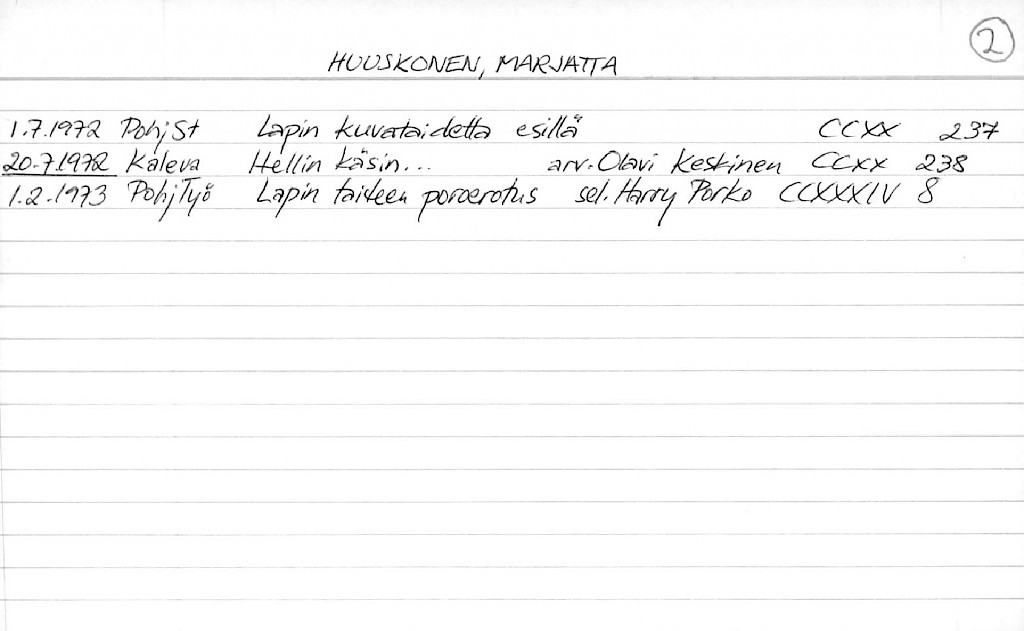 2
HUUSKONEN, MARJATTA
1.7.1972 PohjSt Lapin kuvataidetta esillä CCXX 237
20.7.1972 Kaleva Hellin käsin... arv. Olavi Keskinen CCXX 238
1.2.1973 PohjTyö Lapin taiteen poroerotus sel. Harry Porko CCXXXIV 8